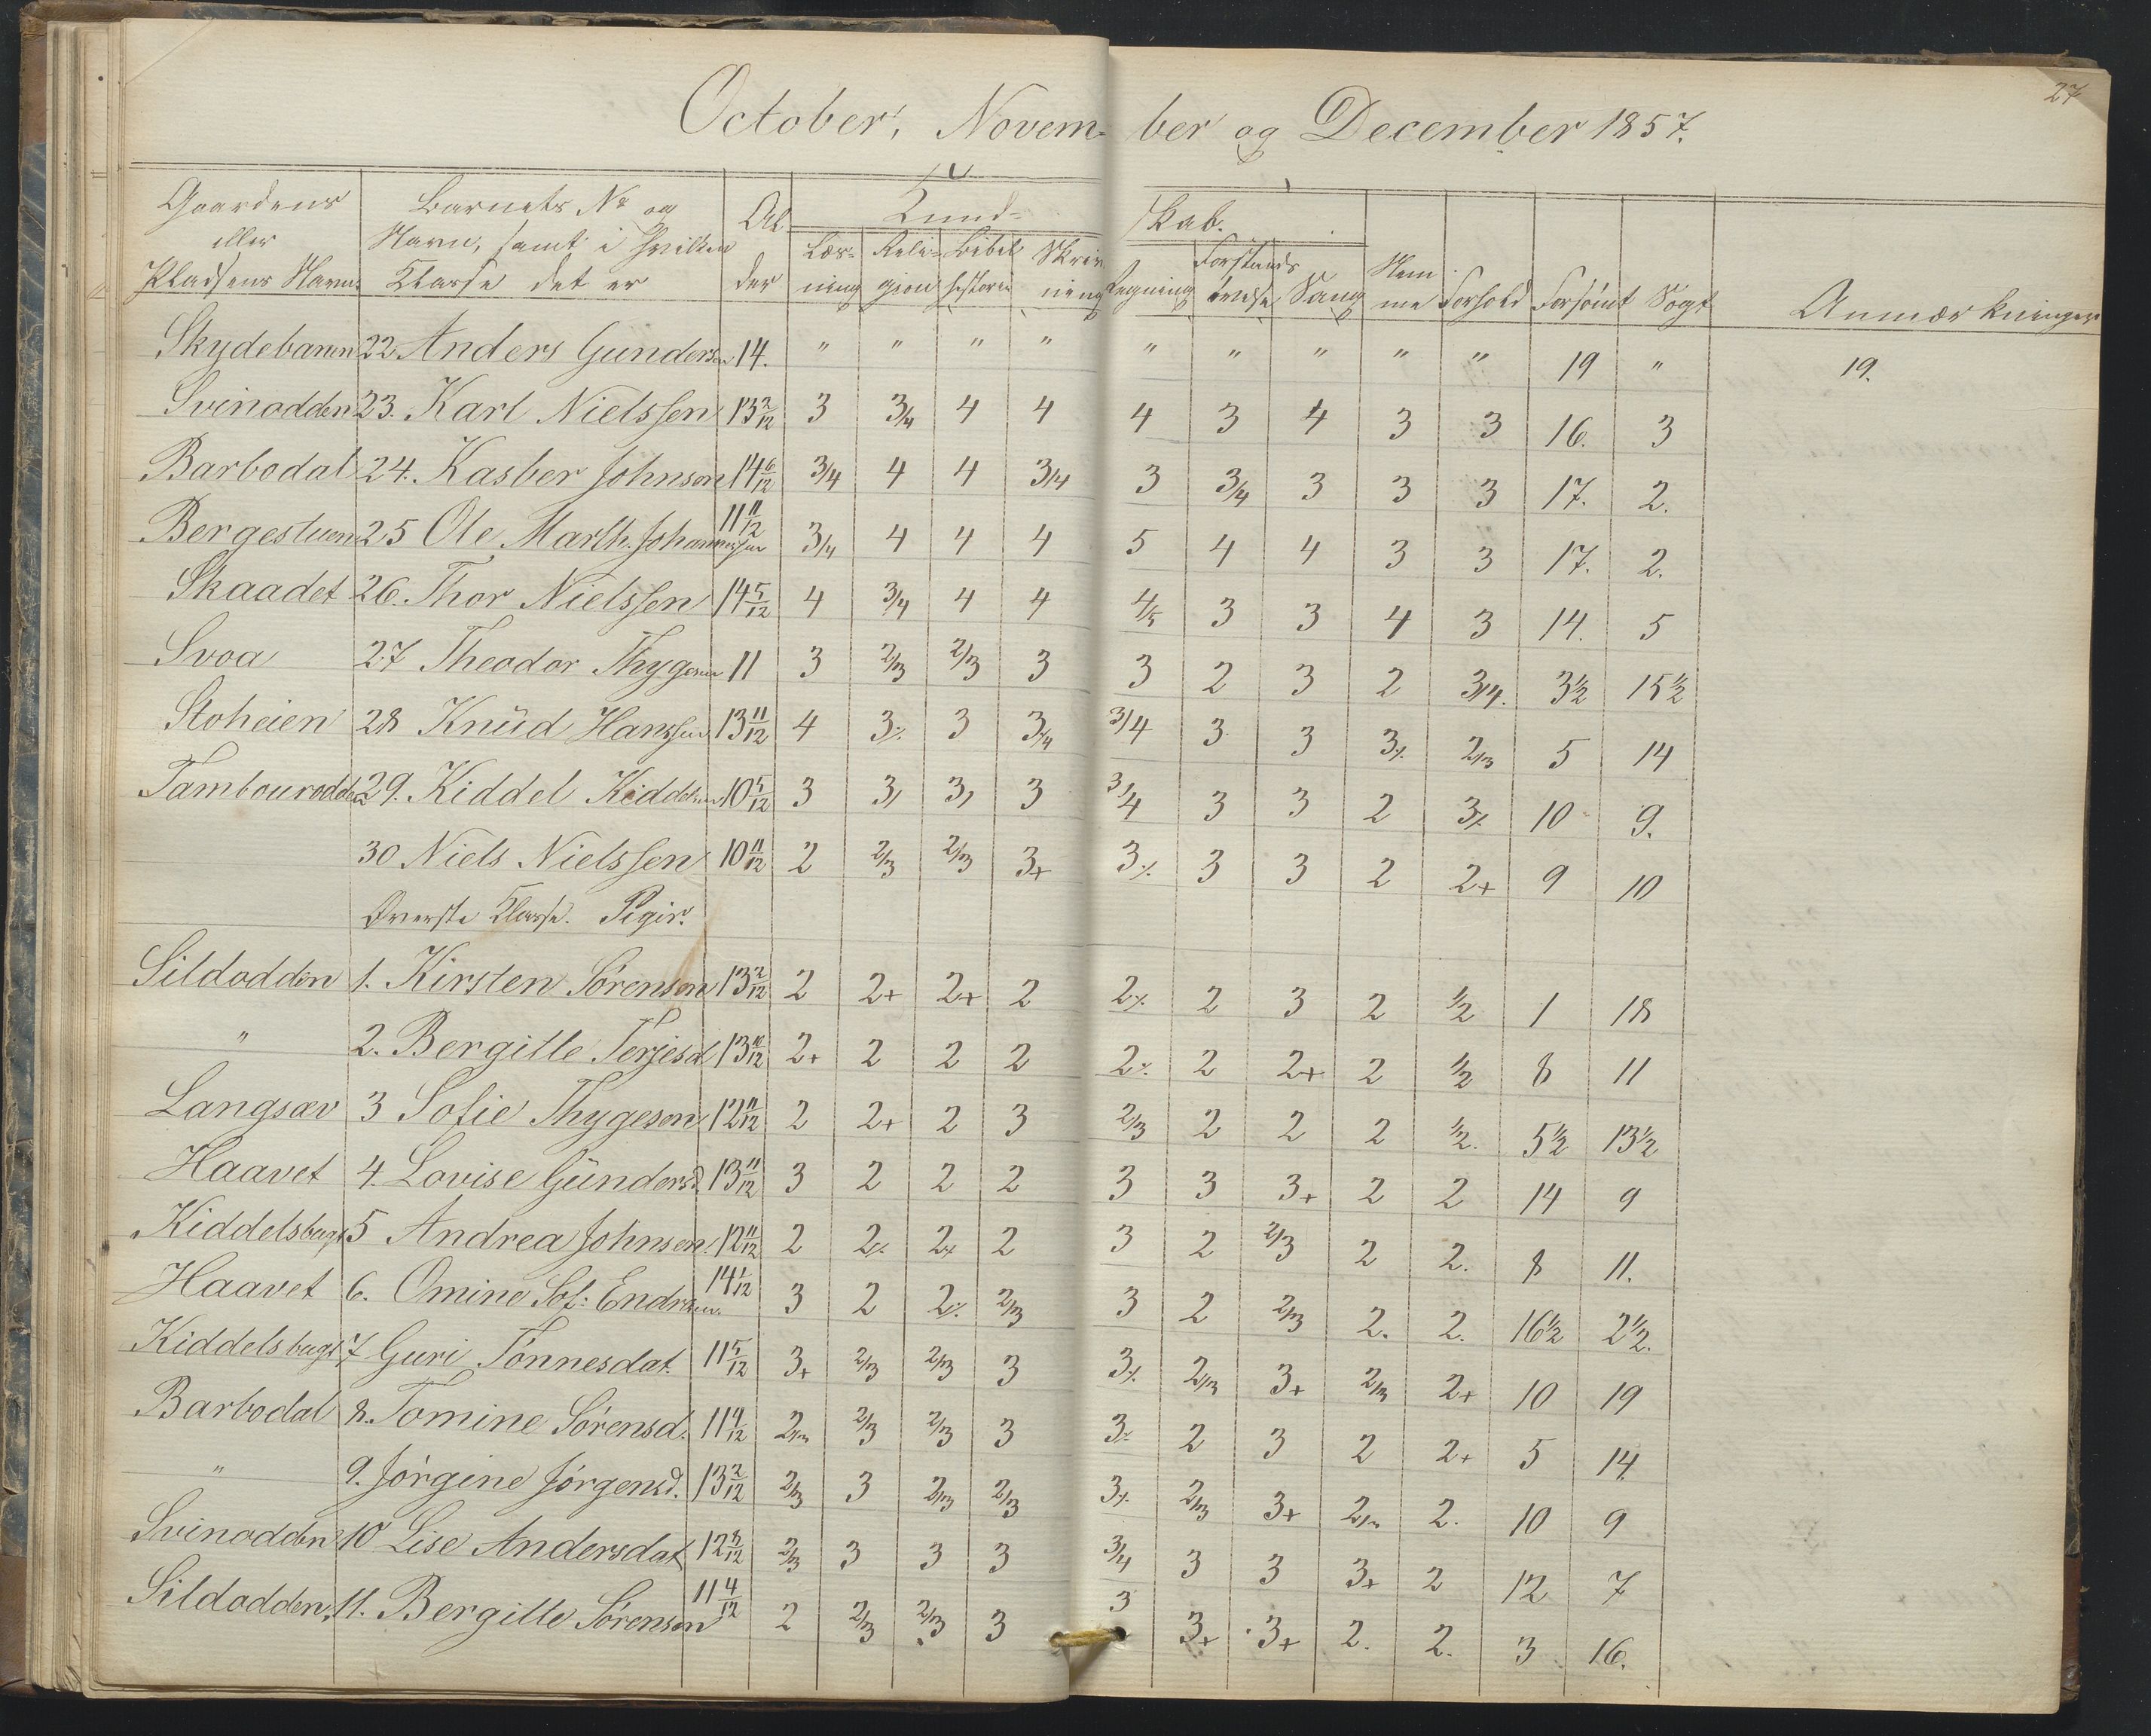 27
October, Novem- ber og December 1857.
Gaardens eller Pladsens Navn. Barnets No og Navn, samt i hvilken Klasse det er Al der Kund- skab. Læs- ning Reli- gion Bibel historie Skriv- ning Regning Forstands øvelse Sang Nem me Forhold Forsømt Søgt Anmærkninger
Skydebanen 22 Anders Gundersen 14. " " " " " " " " " 19 " 19.
Svinodden 23. Karl Nielssen 13 2/12 3 3/4 4 4 4 3 4 3 3 16. 3
Barbodal 24. Kasber Johnson 14 6/12 3/4 4 4 3/4 3 3/4 3 3 3 17. 2.
Bergestuen 25 Ole Marth. Johannessen 11 11/12 3/4 4 4 4 5 4 4 3 3 17. 2.
Skaadet 26. Thor Nielssen 14 5/12 4 3/4 4 4 4/5 3 3 4 3 14. 5
Svoa 27 Theodor Thygesen 11 3 2/3 2/3 3 3 2 3 2 3/4. 3½ 15½
Stoheien 28 Knüd Hanssen 13 11/12 4 3% 3 3/4 3/4 3 3 3% 2/3 5 14
Tambourodden 29. Kiddel Kiddelsen 10 5/12 3 3/ 3/ 3 3/4 3 3 2 3% 10 9.
30 Niels Nielssen 10 11/12 2 2/3 2/3 3+ 3% 3 3 2 2+ 9 10
Øverste Klasse. Piger.
Sildodden 1. Kirsten Sørenson 13 2/12 2 2+ 2+ 2 2% 2 3 2 ½ 1 18
" 2. Bergitte Terjesd 13 10/12 2+ 2 2 2 2% 2 2+ 2 ½ 8 11
Langsæv 3 Sofie Thygeson 12 11/12 2 2+ 2 3 2/3 2 2 2 ½. 5½ 13½
Haavet 4. Lovise Gündersd. 13 11/12 3 2 2 2 3 3 3+ 2 2 14 9
Kiddelsbugt 5 Andrea Johnsen. 12 11/12 2 2% 2+ 2 3 2 2/3 2 2. 8 11.
Haavet 6. Omine Sof: Endresen. 14 1/12 3 2 2% 2/3 3 2 2/3 2. 2. 16½ 2½.
Kiddelsbugt 7 Guri Tönnesdat. 11 5/12 3+ 2/3 2/3 3 3% 2/3 3+ 2/3 2+ 10 19
Barbodal 8. Tomine Sörensd. 11 9/12 2/3 2/3 2/3 3 3% 2 3 2 2+ 5 14.
" 9. Jörgine Jörgensd. 13 2/12 2/3 3 2/3 2/3 3% 2/3 3+ 2/3 2. 10 9
Svinodden 10 Lise Andersdat 12 8/12 2/3 3 3 3 3/4 3 3 3+ 2 12 7
Sildodden. 11. Bergitte Sörenson 11 4/12 2 2/3 2/3 3 3 3+ 3+ 2. 2. 3 16.